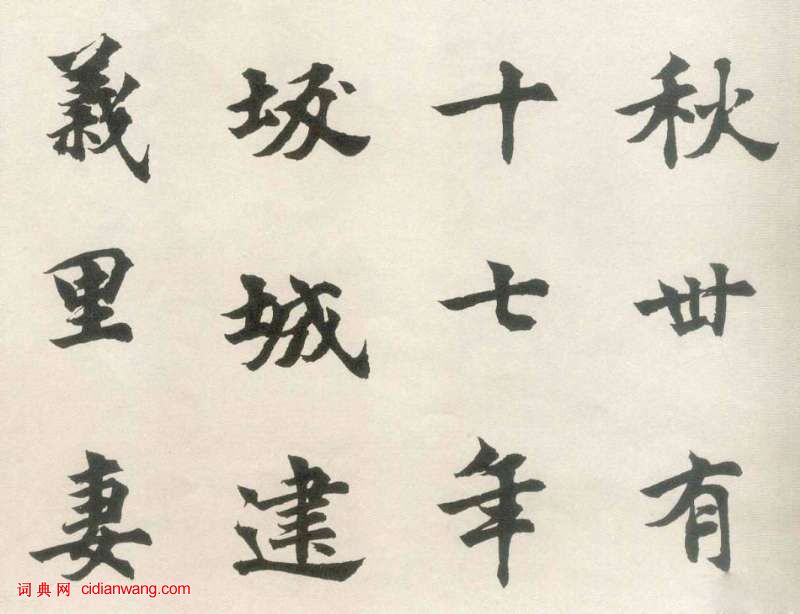 秋丗有
十七年
坺城建
義里妻
词典网 cidianwang.com